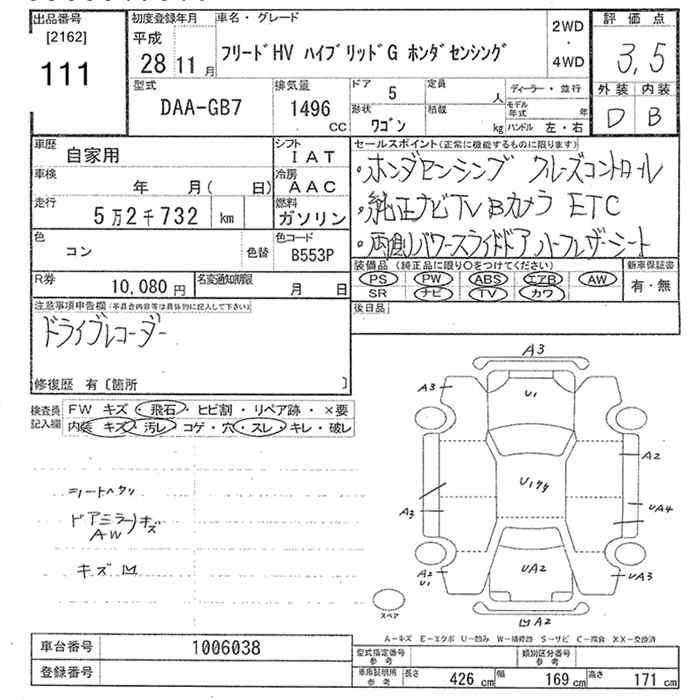 出品番号
[2162]
111
初度登録年月
平成
28 11 月
車名・グレード
フリードHV ハイブリッドG ホンダセンシング
2WD
・
4WD
評価点
3,5
外装 内装
D B
型式
DAA-GB7
排気量
1496
CC
ドア
5
定員
人
形状
ワゴン
積載
kg
ディーラー・並行
モデル年式 年
ハンドル 左・右
車歴
自家用
シフト
IAT
車検
年 月( 日)
冷房
AAC
走行
5万2千732 km
燃料
ガソリン
色
コン
色替
色コード
B553P
R券
10,080 円
名変通知期限
月 日
セールスポイント(正常に機能するものに限ります)
・ホンダセンシング クルーズコントロール
・純正ナビTV Bカメラ ETC
・両側パワースライドドア ハーフレザーシート
装備品 (純正品に限り○をつけてください)
PS PW ABS エアB AW
SR ナビ TV カワ
新車保証書
有・無
後日品
注意事項申告欄(不具合内容等は具体的に記入して下さい)
ドライブレコーダー
修復歴 有〔箇所 〕
検査員
記入欄
FW キズ・飛石・ヒビ割・リペア跡・×要
内装 キズ・汚レ・コゲ・穴・スレ・キレ・破レ
シートヘタリ
ドアミラー キズ
AW
キズ凹
A3
A3
U1
A2
Uリケ
A3
UA4
A2
U1
UA2
UA3
凹A2
スペア
A-キズ E-エクボ U-凹み W-補修跡 S-サビ C-腐食 XX-交換済
車台番号
1006038
登録番号
型式指定番号
参考
類別区分番号
参考
車庫証明用
参考
長さ 426 cm
幅 169 cm
高さ 171 cm